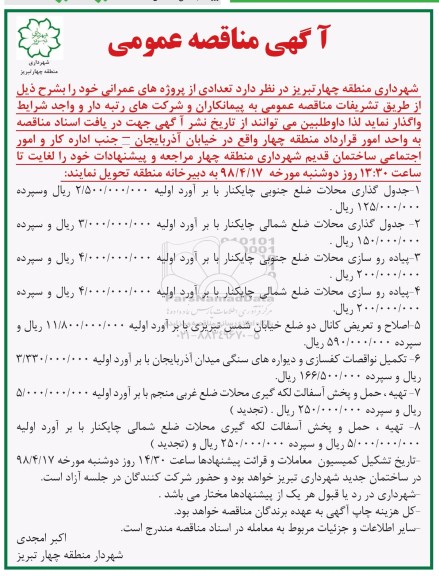 آگهی مناقصه عمومی
شهرداری
منطقه چهارتبریز
شهرداری منطقه چهارتبریز در نظر دارد تعدادی از پروژه های عمرانی خود را بشرح ذیل
از طریق تشریفات مناقصه عمومی به پیمانکاران و شرکت های رتبه دار و واجد شرایط
واگذار نماید لذا داوطلبین می توانند از تاریخ نشر آ گهی جهت در یافت اسناد مناقصه
به واحد امور قرارداد منطقه چهار واقع در خیابان آذربایجان – جنب اداره کار و امور
اجتماعی ساختمان قدیم شهرداری منطقه چهار مراجعه و پیشنهادات خود را لغایت تا
ساعت ۱۳:۳۰ روز دوشنبه مورخه ۹۸/۴/۱۷ به دبیرخانه منطقه تحویل نمایند:
۱-جدول گذاری محلات ضلع جنوبی چایکنار با بر آورد اولیه ۲/۵۰۰/۰۰۰/۰۰۰ ریال وسپرده
۱۲۵/۰۰۰/۰۰۰ ریال .
۲- جدول گذاری محلات ضلع شمالی چایکنار با بر آورد اولیه ۳/۰۰۰/۰۰۰/۰۰۰ ریال و سپرده
۱۵۰/۰۰۰/۰۰۰ ریال .
۳-پیاده رو سازی محلات ضلع جنوبی چایکنار با بر آورد اولیه ۴/۰۰۰/۰۰۰/۰۰۰ ریال و سپرده
۲۰۰/۰۰۰/۰۰۰ ریال .
۴-پیاده رو سازی محلات ضلع شمالی چایکنار با بر آورد اولیه ۴/۰۰۰/۰۰۰/۰۰۰ ریال و سپرده
۲۰۰/۰۰۰/۰۰۰ ریال.
۵-اصلاح و تعریض کانال دو ضلع خیابان شمس تبریزی با بر آورد اولیه ۱۱/۸۰۰/۰۰۰/۰۰۰ ریال و
سپرده ۵۹۰/۰۰۰/۰۰۰ ریال.
۶- تکمیل نواقصات کفسازی و دیواره های سنگی میدان آذربایجان با بر آورد اولیه ۳/۳۳۰/۰۰۰/۰۰۰
ریال و سپرده ۱۶۶/۵۰۰/۰۰۰ ریال.
۷- تهیه ، حمل و پخش آسفالت لکه گیری محلات ضلع غربی منجم با بر آورد اولیه ۵/۰۰۰/۰۰۰/۰۰۰
ریال و سپرده ۲۵۰/۰۰۰/۰۰۰ ریال . (تجدید )
۸- تهیه ، حمل و پخش آسفالت لکه گیری محلات ضلع شمالی چایکنار با بر آورد اولیه
۵/۰۰۰/۰۰۰/۰۰۰ ریال و سپرده ۲۵۰/۰۰۰/۰۰۰ ریال و (تجدید )
-تاریخ تشکیل کمیسیون معاملات و قرائت پیشنهادها ساعت ۱۴/۳۰ روز دوشنبه مورخه ۹۸/۴/۱۷
در ساختمان جدید شهرداری تبریز خواهد بود و حضور شرکت کنندگان در جلسه آزاد است.
-شهرداری در رد یا قبول هر یک از پیشنهادها مختار می باشد .
-کل هزینه چاپ آگهی به عهده برندگان مناقصه خواهد بود.
-سایر اطلاعات و جزئیات مربوط به معامله در اسناد مناقصه مندرج است.
اکبر امجدی
شهردار منطقه چهار تبریز